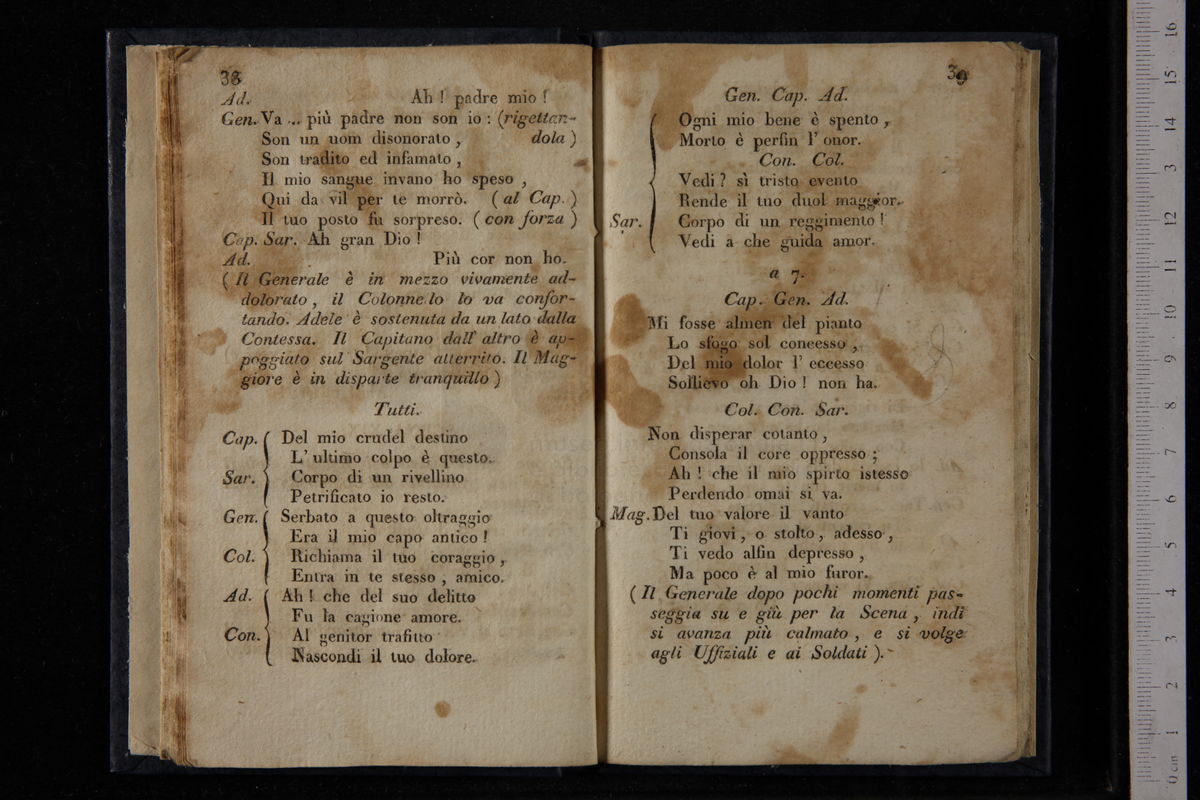 38
Ad. Ah ! padre mio !
Gen. Va ... più padre non son io : (rigettan-
Son un uom disonorato , dola )
Son tradito ed infamato ,
Il mio sangue invano ho speso ,
Qui da vil per te morrò. ( al Cap. )
Il tuo posto fu sorpreso. ( con forza )
Cap. Sar. Ah gran Dio !
Ad. Più cor non ho.
( Il Generale è in mezzo vivamente ad-
dolorato , il Colonnello lo va confor-
tando. Adele è sostenuta da un lato dalla
Contessa. Il Capitano dall' altro è ap-
poggiato sul Sargente atterrito. Il Mag-
giore è in disparte tranquillo )
Tutti.
Cap. Del mio crudel destino
L' ultimo colpo è questo.
Sar. Corpo di un rivellino
Petrificato io resto.
Gen. Serbato a questo oltraggio
Era il mio capo antico !
Col. Richiama il tuo coraggio ,
Entra in te stesso , amico.
Ad. Ah ! che del suo delitto
Fu la cagione amore.
Con. Al genitor trafitto
Nascondi il tuo dolore.
39
Gen. Cap. Ad.
Ogni mio bene è spento ,
Morto è perfin l' onor.
Con. Col.
Vedi ? sì tristo evento
Rende il tuo duol maggior.
Sar. Corpo di un reggimento !
Vedi a che guida amor.
a 7.
Cap. Gen. Ad.
Mi fosse almen del pianto
Lo sfogo sol concesso ,
Del mio dolor l' eccesso
Sollievo oh Dio ! non ha.
Col. Con. Sar.
Non disperar cotanto ,
Consola il core oppresso ;
Ah ! che il mio spirto istesso
Perdendo omai si va.
Mag. Del tuo valore il vanto
Ti giovi , o stolto , adesso ,
Ti vedo alfin depresso ,
Ma poco è al mio furor.
( Il Generale dopo pochi momenti pas-
seggia su e giù per la Scena , indi
si avanza più calmato , e si volge
agli Uffiziali e ai Soldati ).
0 cm 1 2 3 4 5 6 7 8 9 10 11 12 13 14 15 16